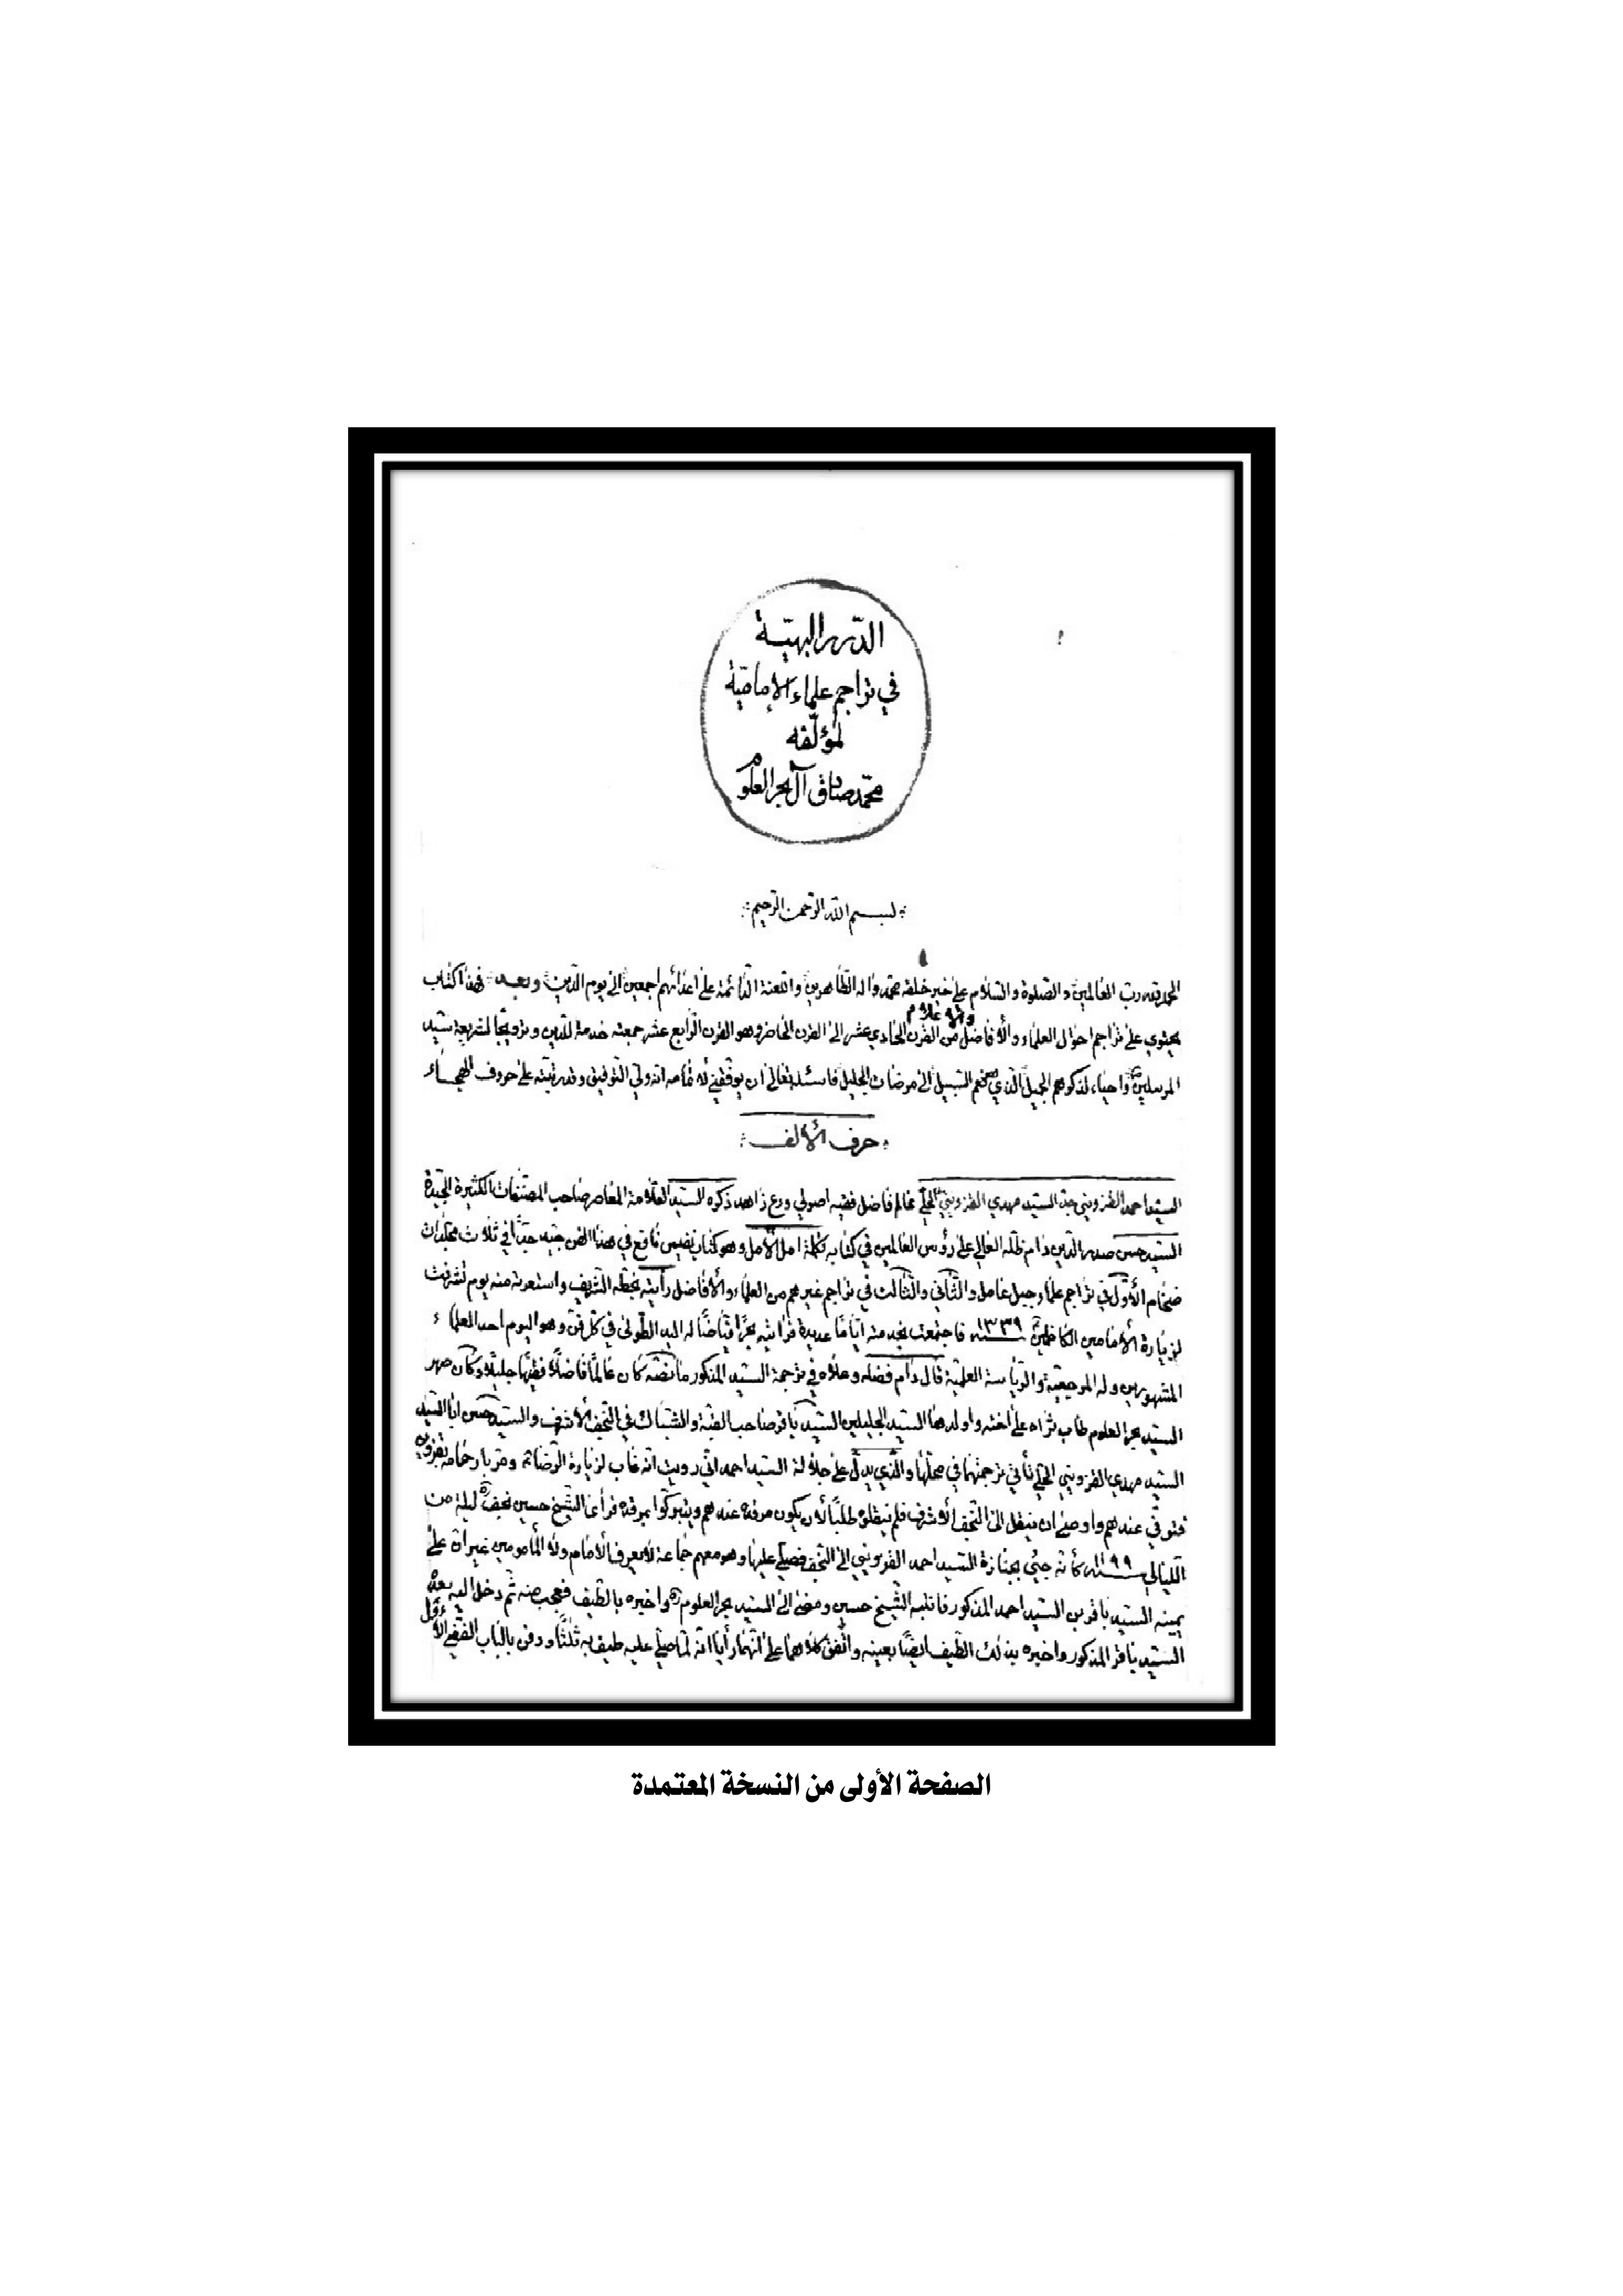 الدّرر البهيّة
في تراجم علماء الإماميّة
لمؤلّفه
محمّد صادق آل بحر العلوم
بسم الله الرّحمن الرّحيم
الحمد لله ربّ العالمين والصّلوة والسّلام على خير خلقه محمّد واله الطّاهرين واللعنة الدّائمة على اعدائهم اجمعين الى يوم الدّين وبعد فهذا كتاب
يحتوي على تراجم احوال العلماء والأفاضل والأعلام من القرن الحادي عشر الى القرن الحاضر وهو القرن الرّابع عشر جمعته خدمة للدّين وترويجًا لشريعة سيّد
المرسلين واحياء لذكرهم الجميل الّذي هو نعم السّبيل الى مرضات الجليل فاسئله تعالى ان يوفّقني لاتمامه انه ولي التّوفيق وقد رتّبته على حروف الهجاء
حرف الألف
السيّد احمد القزويني جدّ السيّد مهدي القزويني الحلّي عالم فاضل فقيه اصولي ورع زاهد ذكره السيّد العلّامة المعاصر صاحب المصنّفات الكثيرة الجيّدة
السيّد حسن صدر الدّين دام ظلّه العالي على رؤس العالمين في كتابه تكملة امل الآمل وهو كتاب نفيس نافع في هذا الفن جيّد جدًّا في ثلاث مجلّدات
ضخام الأوّل في تراجم علماء جبل عامل والثّاني والثّالث في تراجم غيرهم من العلماء والأفاضل رأيته بخطّه الشّريف واستعرته منه يوم تشرفت
لزيارة الأمامين الكاظمين سنة ١٣٣٩ فاجتمعت بخدمته ايّامًا عديدة فرأيته بحرًا فيّاضًا له اليد الطّولى في كل فنّ وهو اليوم احد العلماء
المشهورين وله المرجعيّة والرّياسة العلميّة قال دام فضله وعلاه في ترجمة السيّد المذكور ما نصّه كان عالمًا فاضلًا فقيهًا جليلًا وكان صهر
السيّد بحر العلوم طاب ثراه على اخته واولدها السيّد الجليلين السيّد باقر صاحب القبّة والشبّاك في النّجف الأشرف والسيّد حسن ابا السيّد
السيّد مهدي القزويني الحلّي تأتي ترجمتهما في محلّها والّذي يدلّ على جلالة السيّد احمد انّي رويت انّه غاب لزيارة الرّضا ومرّ بارحامه بقزوين
فتوفّي عندهم واوصى ان ينقل الى النّجف الأشرف فلم ينقلوه طلبًا لأن يكون مرقده عندهم ويتبرّكوا بمرقده فرأى الشّيخ حسين نجف ليلة من
اللّيالي سنة ١١٩٩ كأنّه جيئ بجنازة السيّد احمد القزويني الى النّجف فصلّى عليها وهو معهم جماعة لا يعرف الأمام ولا المأمومين غير ان على
يمينه السيّد باقر بن السيّد احمد المذكور فانتبه الشّيخ حسين ومضى الى السيّد بحر العلوم واخبره بالطّيف فعجب منه ثمّ دخل اليه بعده
السيّد باقر المذكور واخبره بذلك الطّيف ايضًا بعينه واتّفق كلاهما على انّهما رأيا انّه لمّا صلّي عليه طيف به ثلثًا ودفن بالباب الأوّل
الصفحة الأولى من النسخة المعتمدة